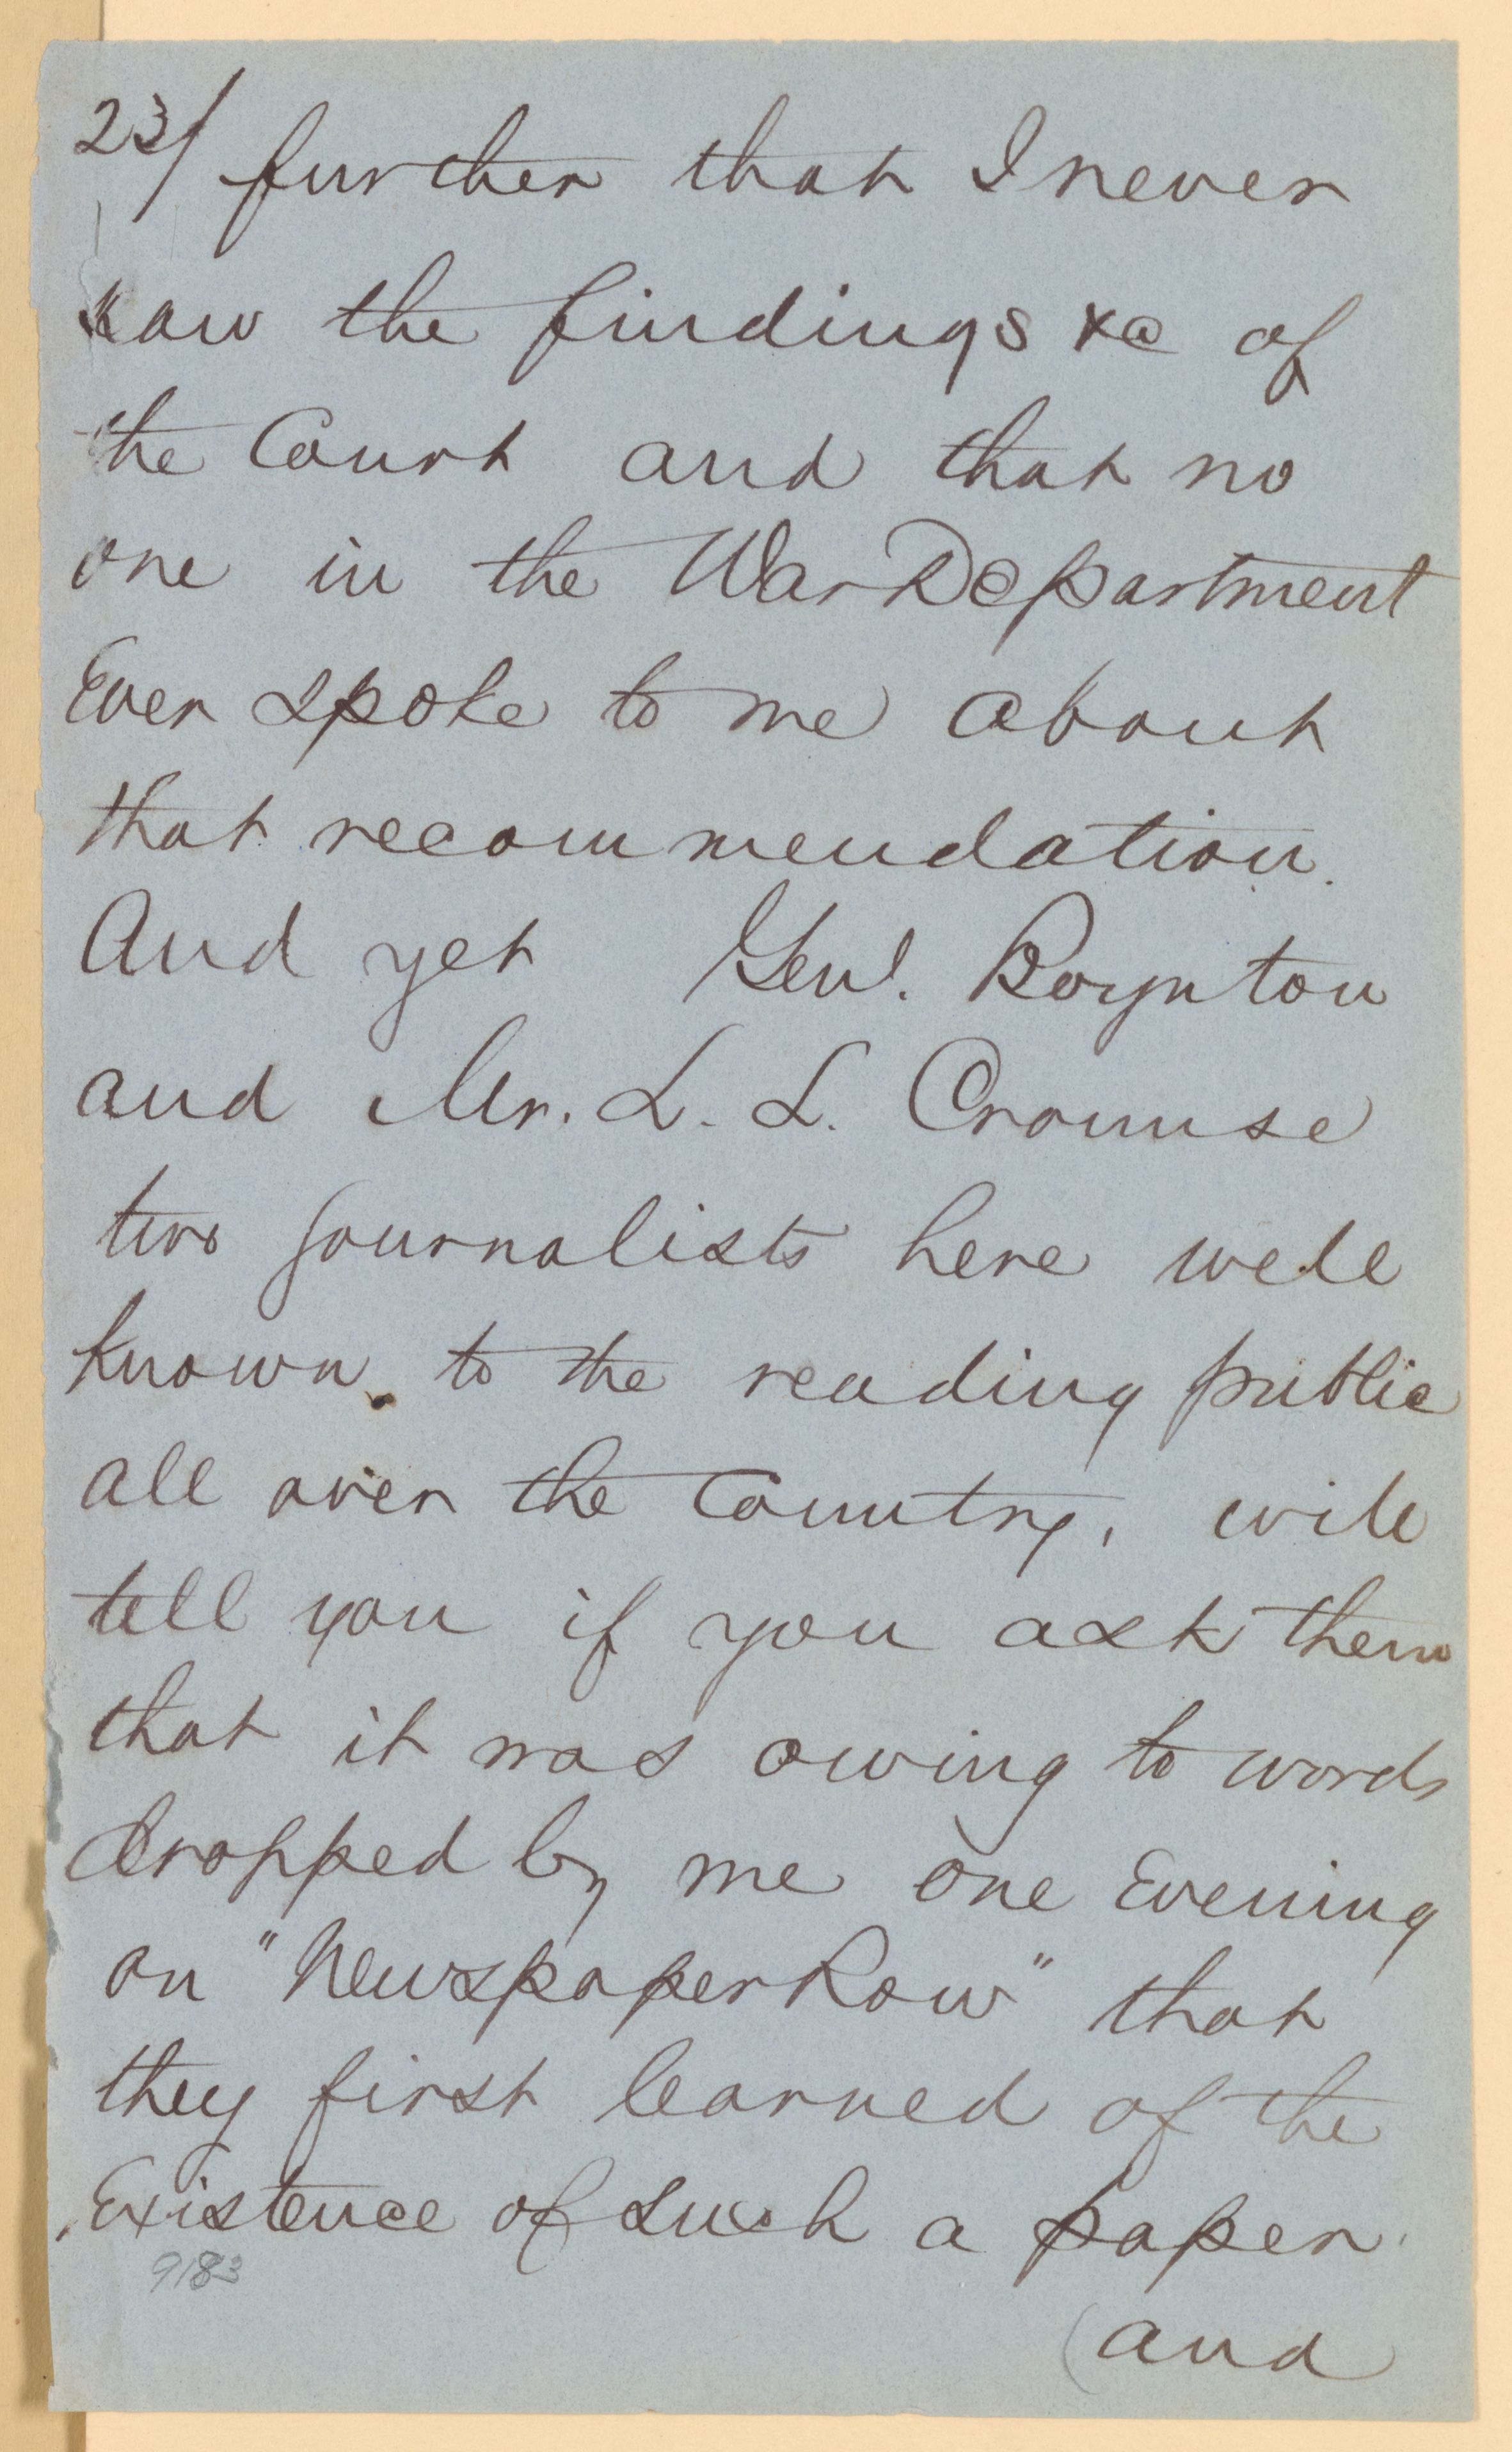 23/ further that I never
saw the findings &c of
the Court and that no
one in the War Department
Ever spoke to me about
that recommendation.
And yet Genl. Boynton
and Mr. L. L. Crounse
two journalists here well
known to the reading public
all over the Country, will
tell you if you ask them
that it was owing to words
dropped by me one Evening
on "Newspaper Row" that
they first learned of the
Existence of such a paper.
9183
(and